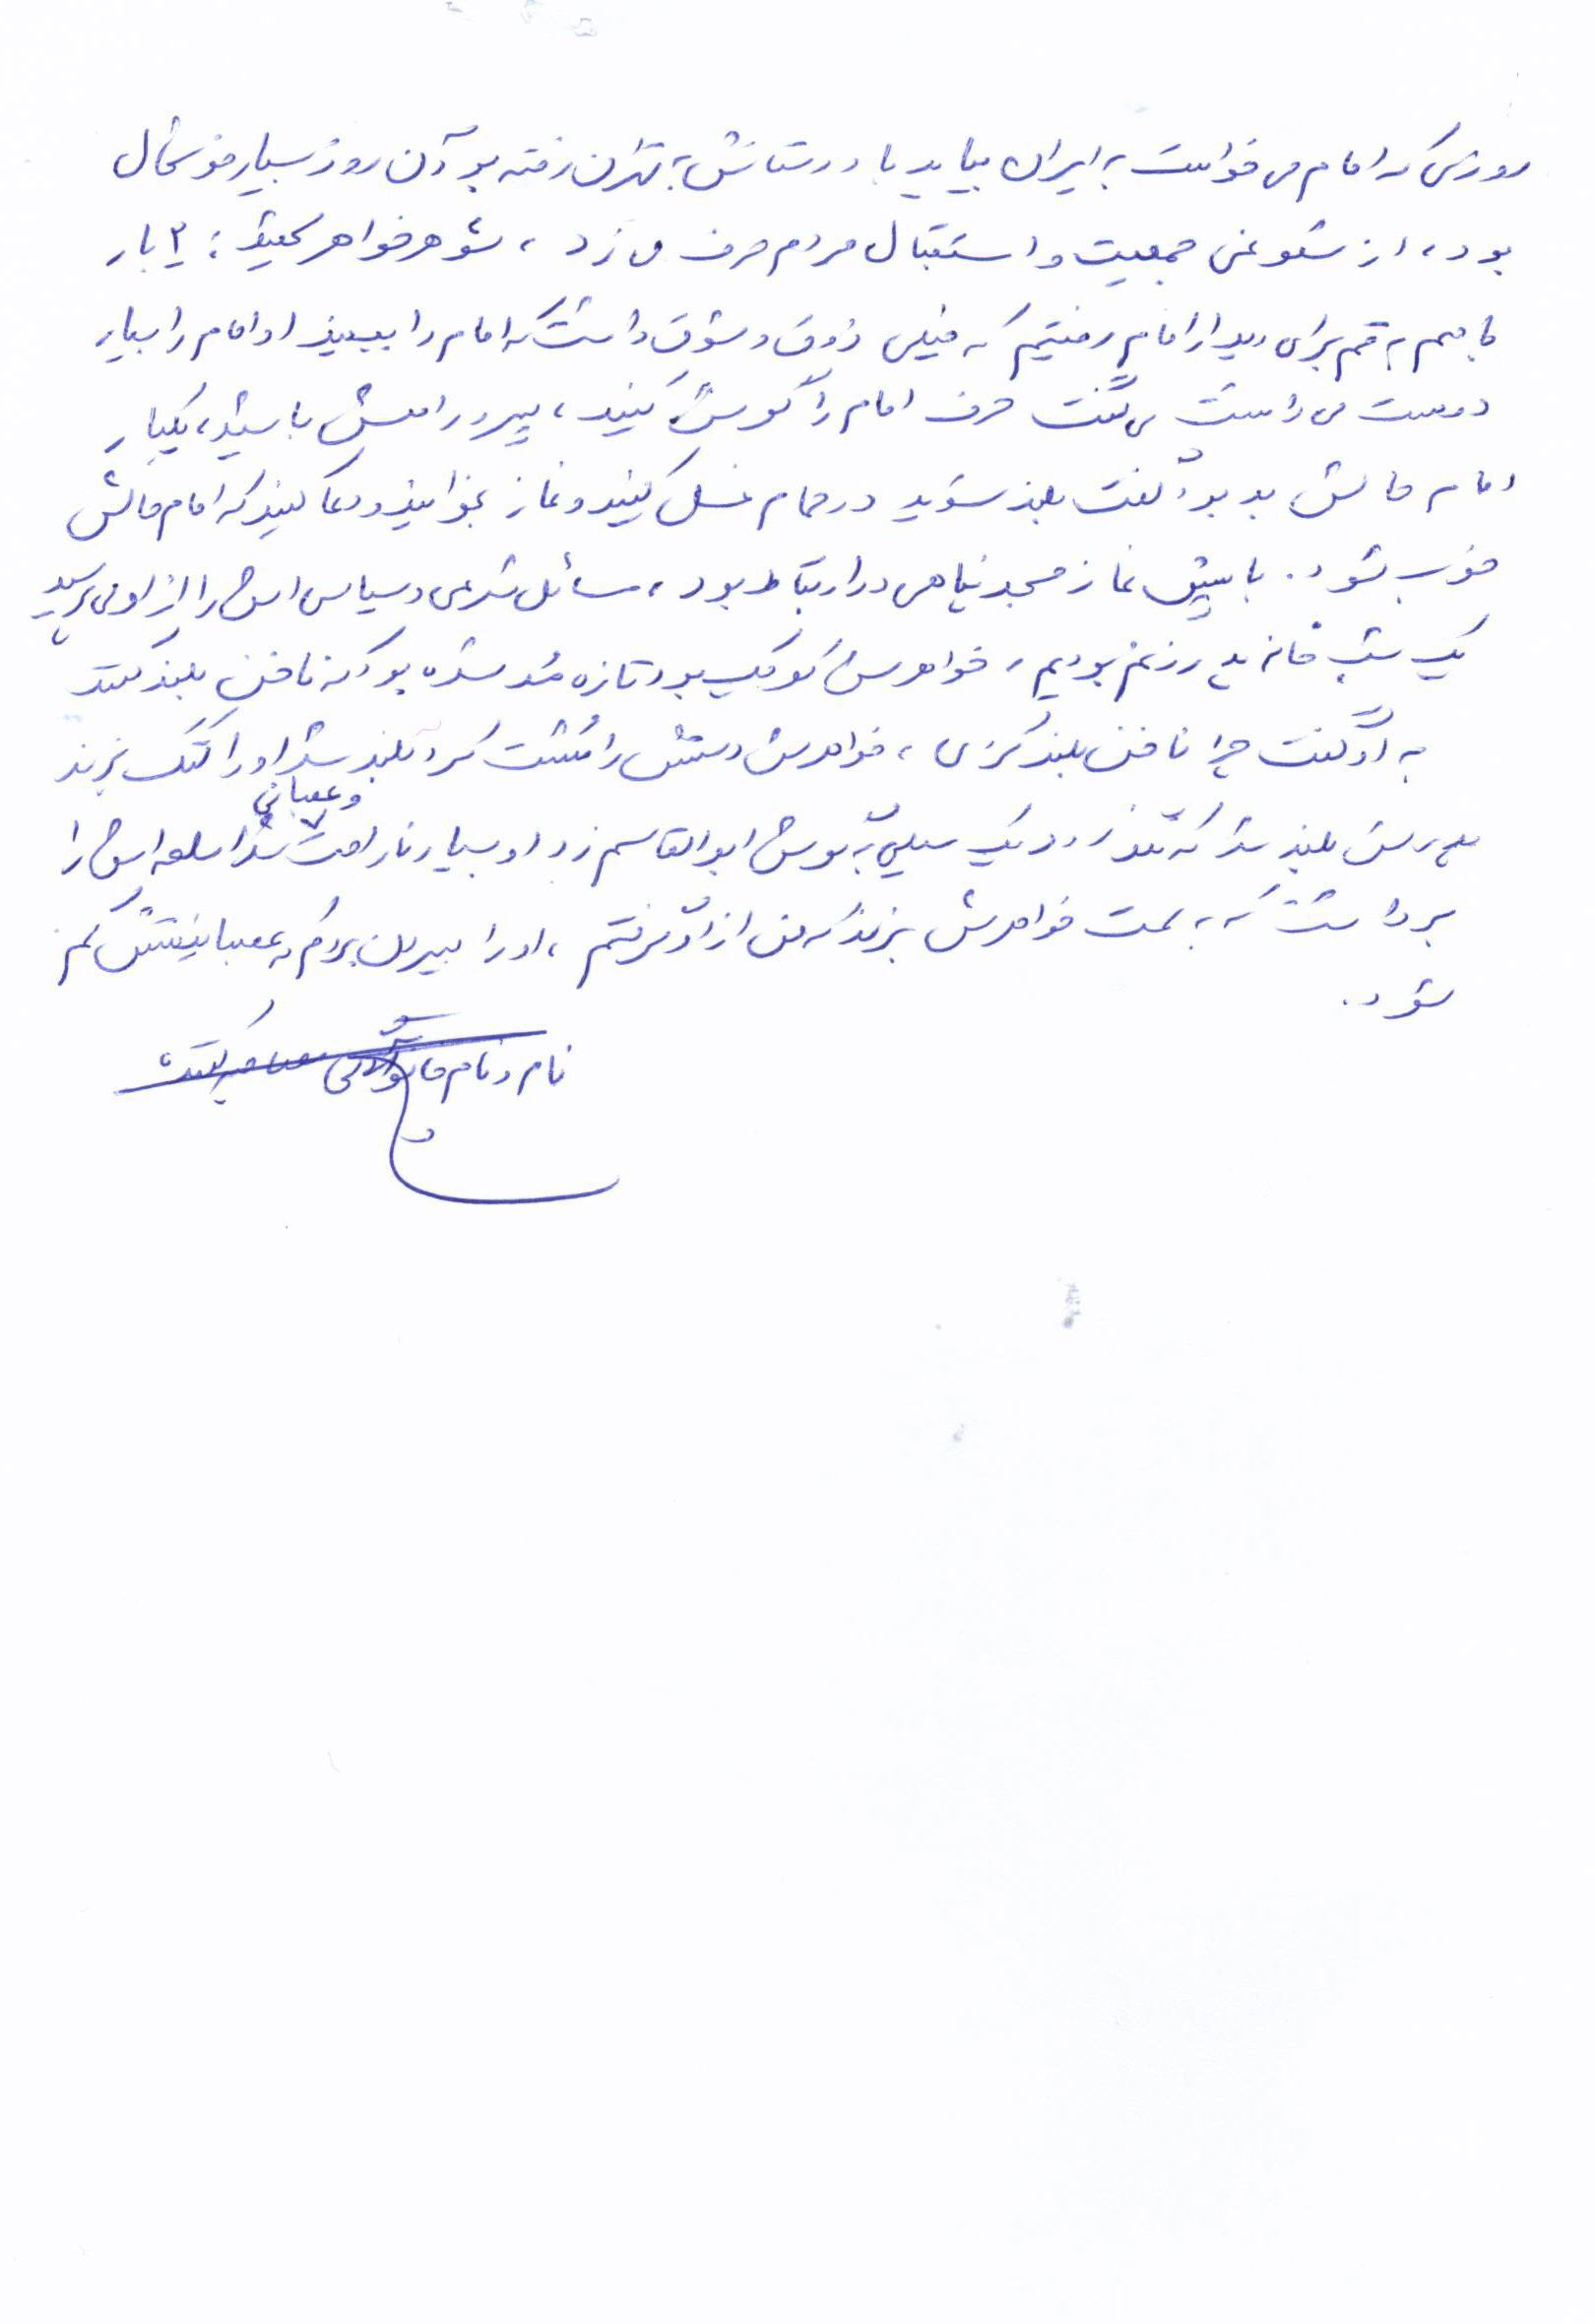 روزی که امام می خواست به ایران بیاید با دوستانش به تهران رفته بود آن روز بسیار خوشحال
بود، از شلوغی جمعیت و استقبال مردم حرف می زد، شوهر خواهر شهید: ۲ بار
با هم به قم برای دیدار امام رفتیم که خیلی ذوق و شوق داشت که امام را ببیند او امام را بسیار
دوست می داشت می گفت حرف امام را گوش کنید، پیرو راهش باشید، یکبار
امام حالش بد بود گفت بلند شوید در حمام غسل کنید و نماز بخوانید و دعا کنید که امام حالش
خوب شود. با پیش نماز مسجد پناهی در ارتباط بود، مسائل شرعی و سیاسی اش را از او می پرسید
یک شب خانه پدر زنم بودیم، خواهرش کوچک بود تازه مُد شده بود که ناخن بلند کنند
به او گفت چرا ناخن بلند کردی، خواهرش دستش را مُشت کرد بلند شد او را کتک بزند
پدرش بلند شد که نگذارد یک سیلی به گوش ابوالقاسم زد او بسیار ناراحت و عصبانی شد اسلحه اش را
برداشت که به سمت خواهرش بزند که من از او گرفتم، او را بیرون بردم که عصبانیتش کم
شود.
نام و نام خانوادگی مصاحبه کننده